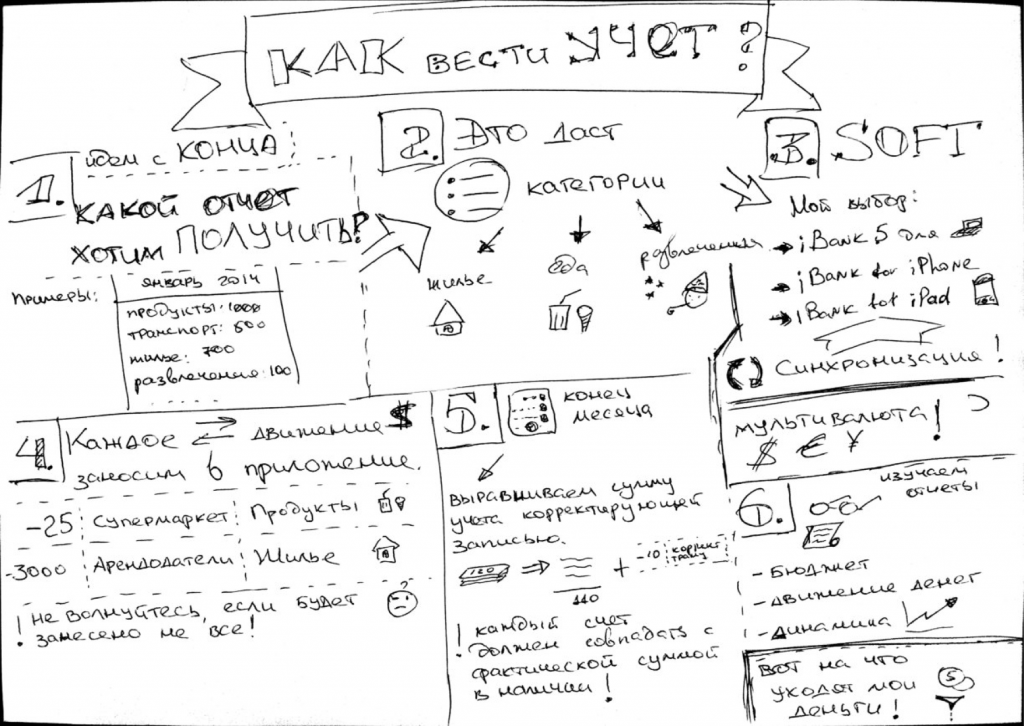 КАК ВЕСТИ УЧЕТ?
1.
идем с КОНЦА
КАКОЙ ОТЧЕТ
ХОТИМ ПОЛУЧИТЬ?
Примеры:
январь 2014
продукты: 1000
транспорт: 500
жилье: 700
развлечения: 100
2. Это даст
категории
жилье
еда
развлечения
3. SOFT
Мой выбор:
iBank 5 для
iBank for iPhone
iBank for iPad
Синхронизация!
мультивалюта!
$ € ¥
4. Каждое движение $
заносим в приложение.
-25 Супермаркет Продукты
-3000 Арендодатели Жилье
! не волнуйтесь, если будет
занесено не все!
5. конец
месяца
выравниваем сумму
учета корректирующей
записью.
120
+ -10
110
! каждый счет
должен совпадать с
фактической суммой
в наличии!
6. изучаем
отчеты
- Бюджет
- движение денег
- динамика
Вот на что
уходят мои
деньги!